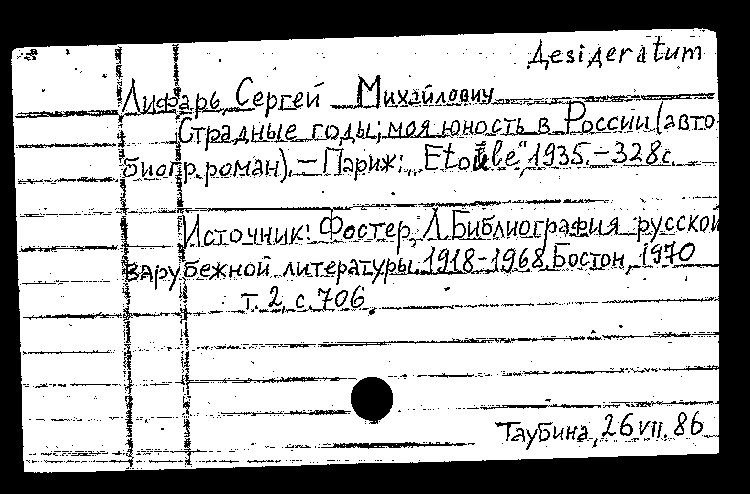 Desideratum
Лифарь, Сергей Михайлович
Страдные годы; моя юность в России (авто-
биогр. роман). – Париж: „Etoile", 1935. – 328 с.
Источник: Фостер, Л. Библиография русской
зарубежной литературы. 1918-1968. Бостон, 1970
т. 2, с. 706.
Таубина, 26 VII. 86